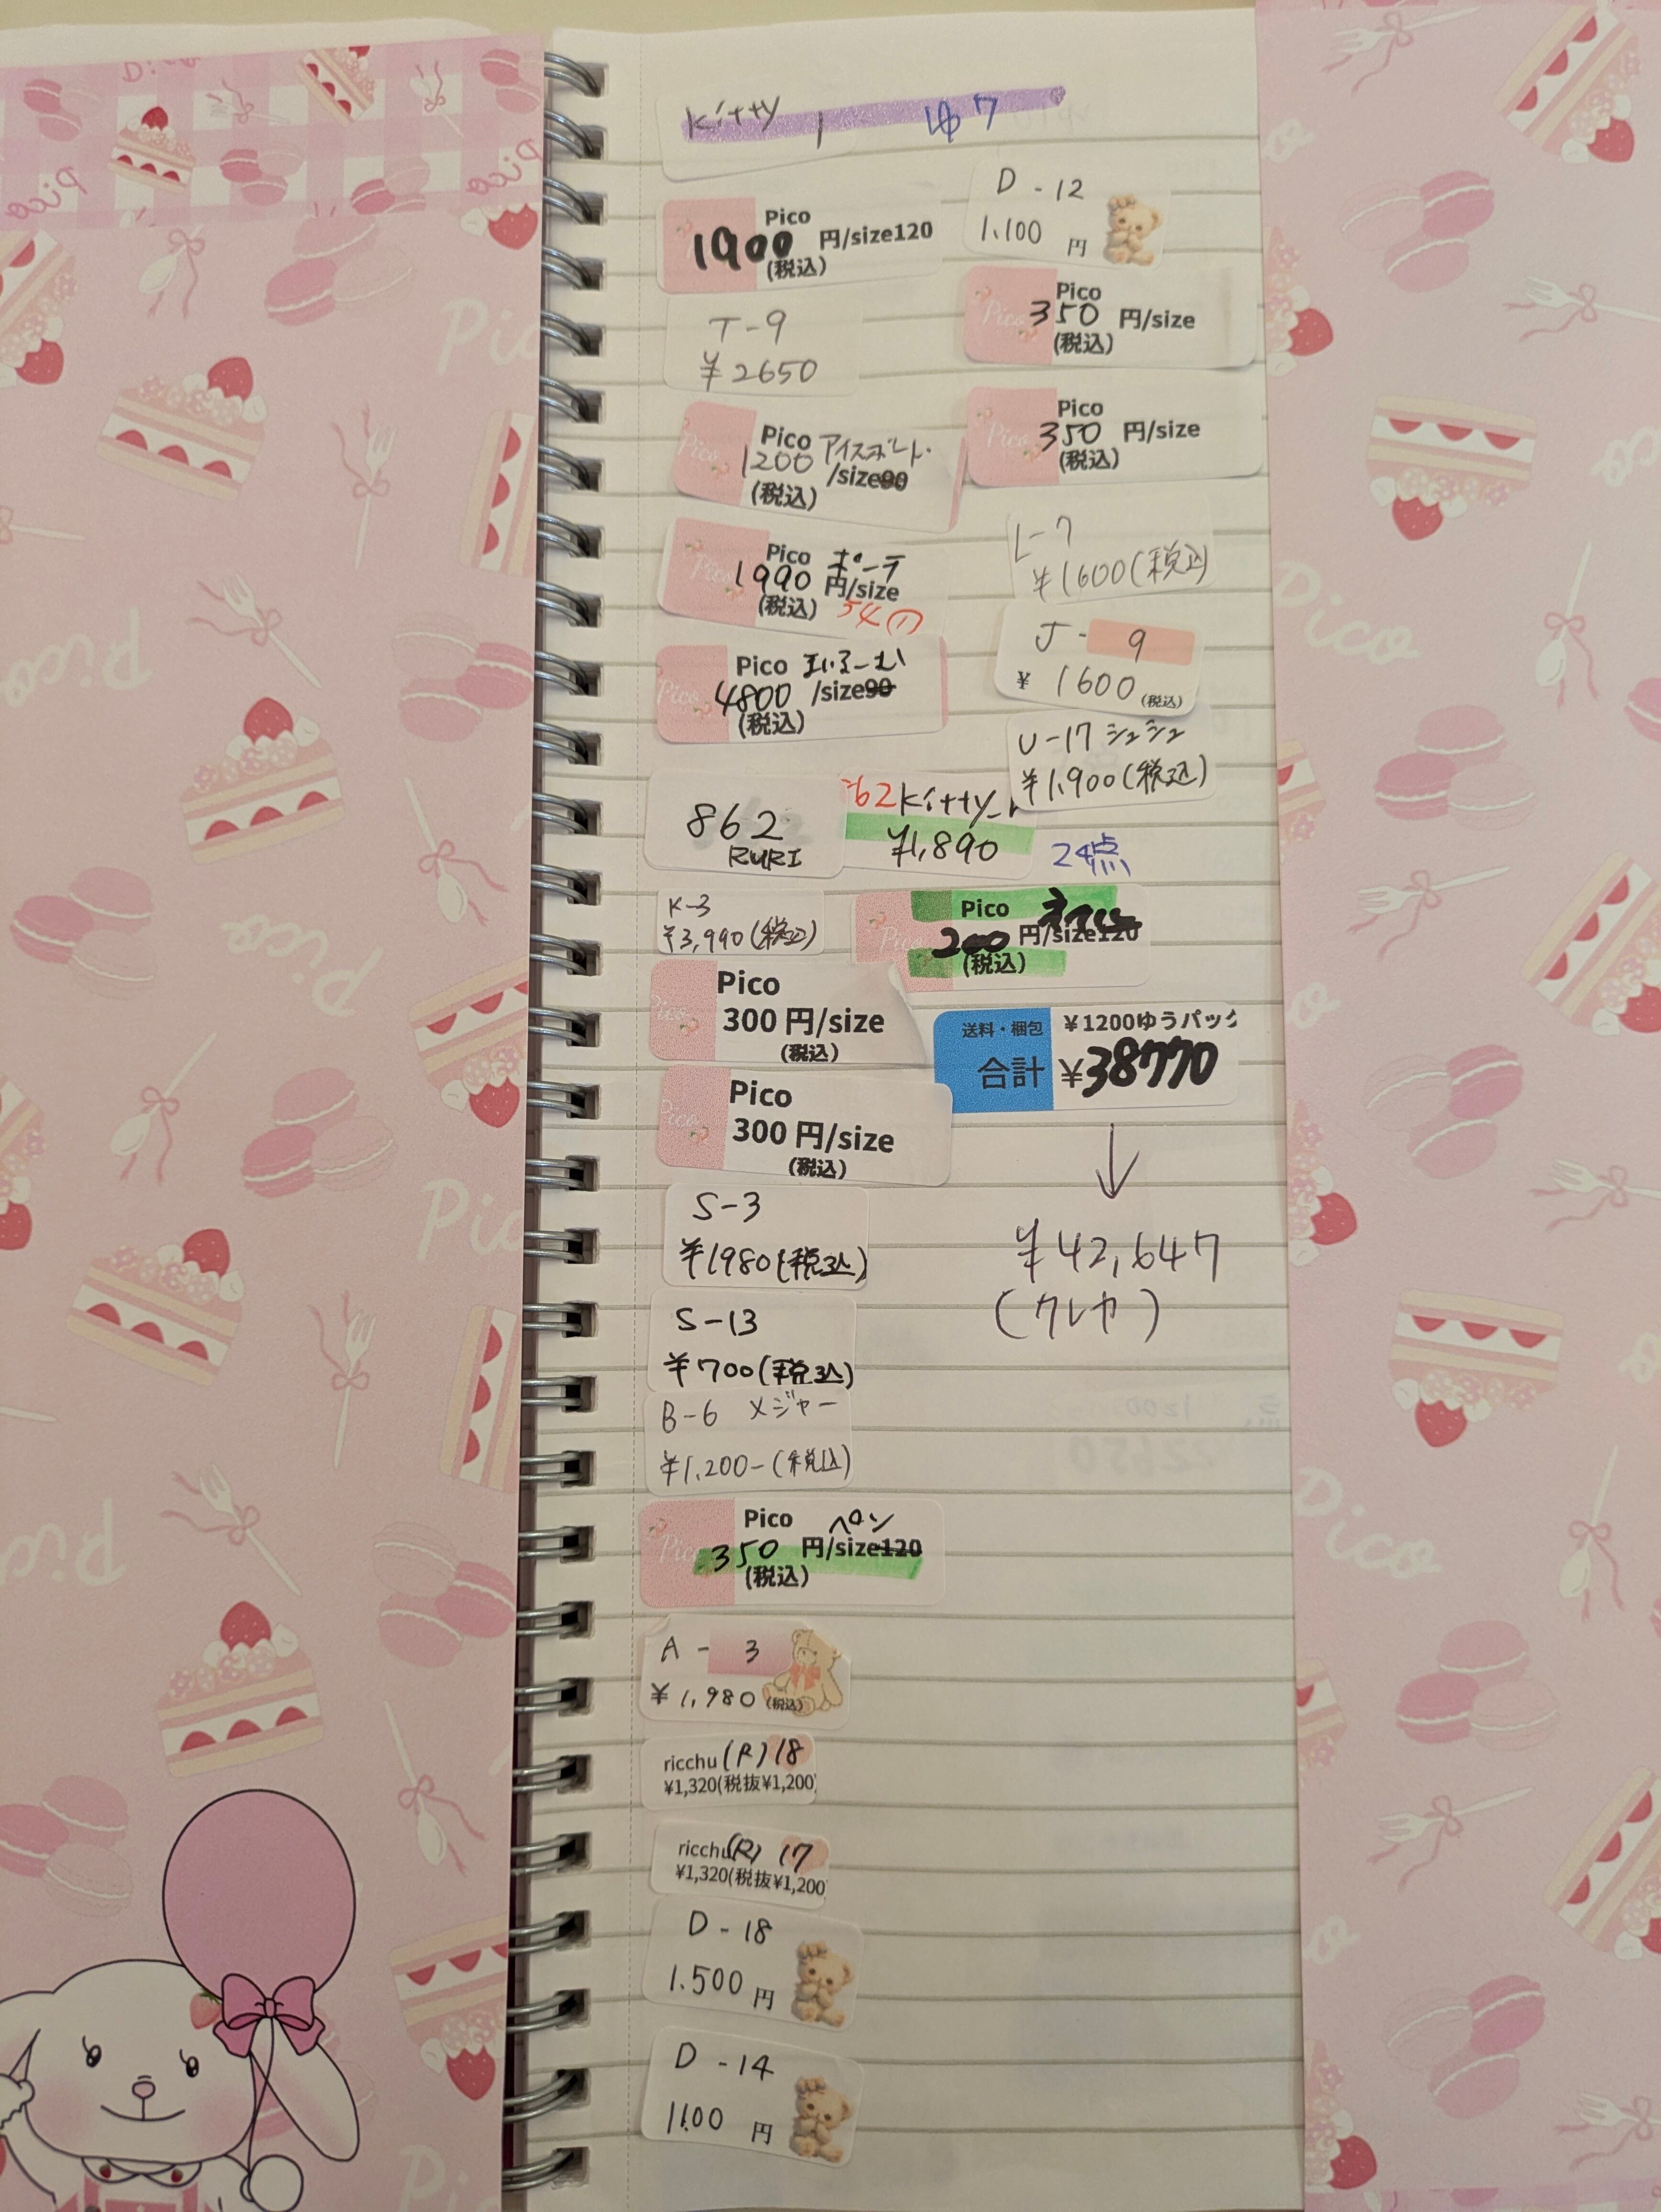 Kitty
ゆ7
Pico
1900 円/size120
(税込)
T-9
¥2650
Pico アイスボレト.
1200 /size90
(税込)
Pico ポーチ
1990 円/size
(税込) 54
Pico
4800 /size90
(税込)
862
RURI
62 Kitty
¥1,890
K-3
¥3,990(税込)
Pico
200 円/size120
(税込)
Pico
300 円/size
(税込)
Pico
300 円/size
(税込)
S-3
¥1980(税込)
S-13
¥700(税込)
B-6 メジャー
¥1,200-(税込)
Pico ペン
350 円/size120
(税込)
A - 3
¥ 1,980 (税込)
ricchu (R) 18
¥1,320(税抜¥1,200
ricchu (R) 17
¥1,320(税抜¥1,200
D - 18
1.500 円
D - 14
1100 円
D - 12
1.100 円
Pico
350 円/size
(税込)
Pico
350 円/size
(税込)
L-7
¥1600(税込)
J - 9
¥ 1600 (税込)
U-17 シュシュ
¥1,900(税込)
24点
送料・梱包 ¥1200ゆうパック
合計 ¥38770
↓
¥42,647
(クレカ)